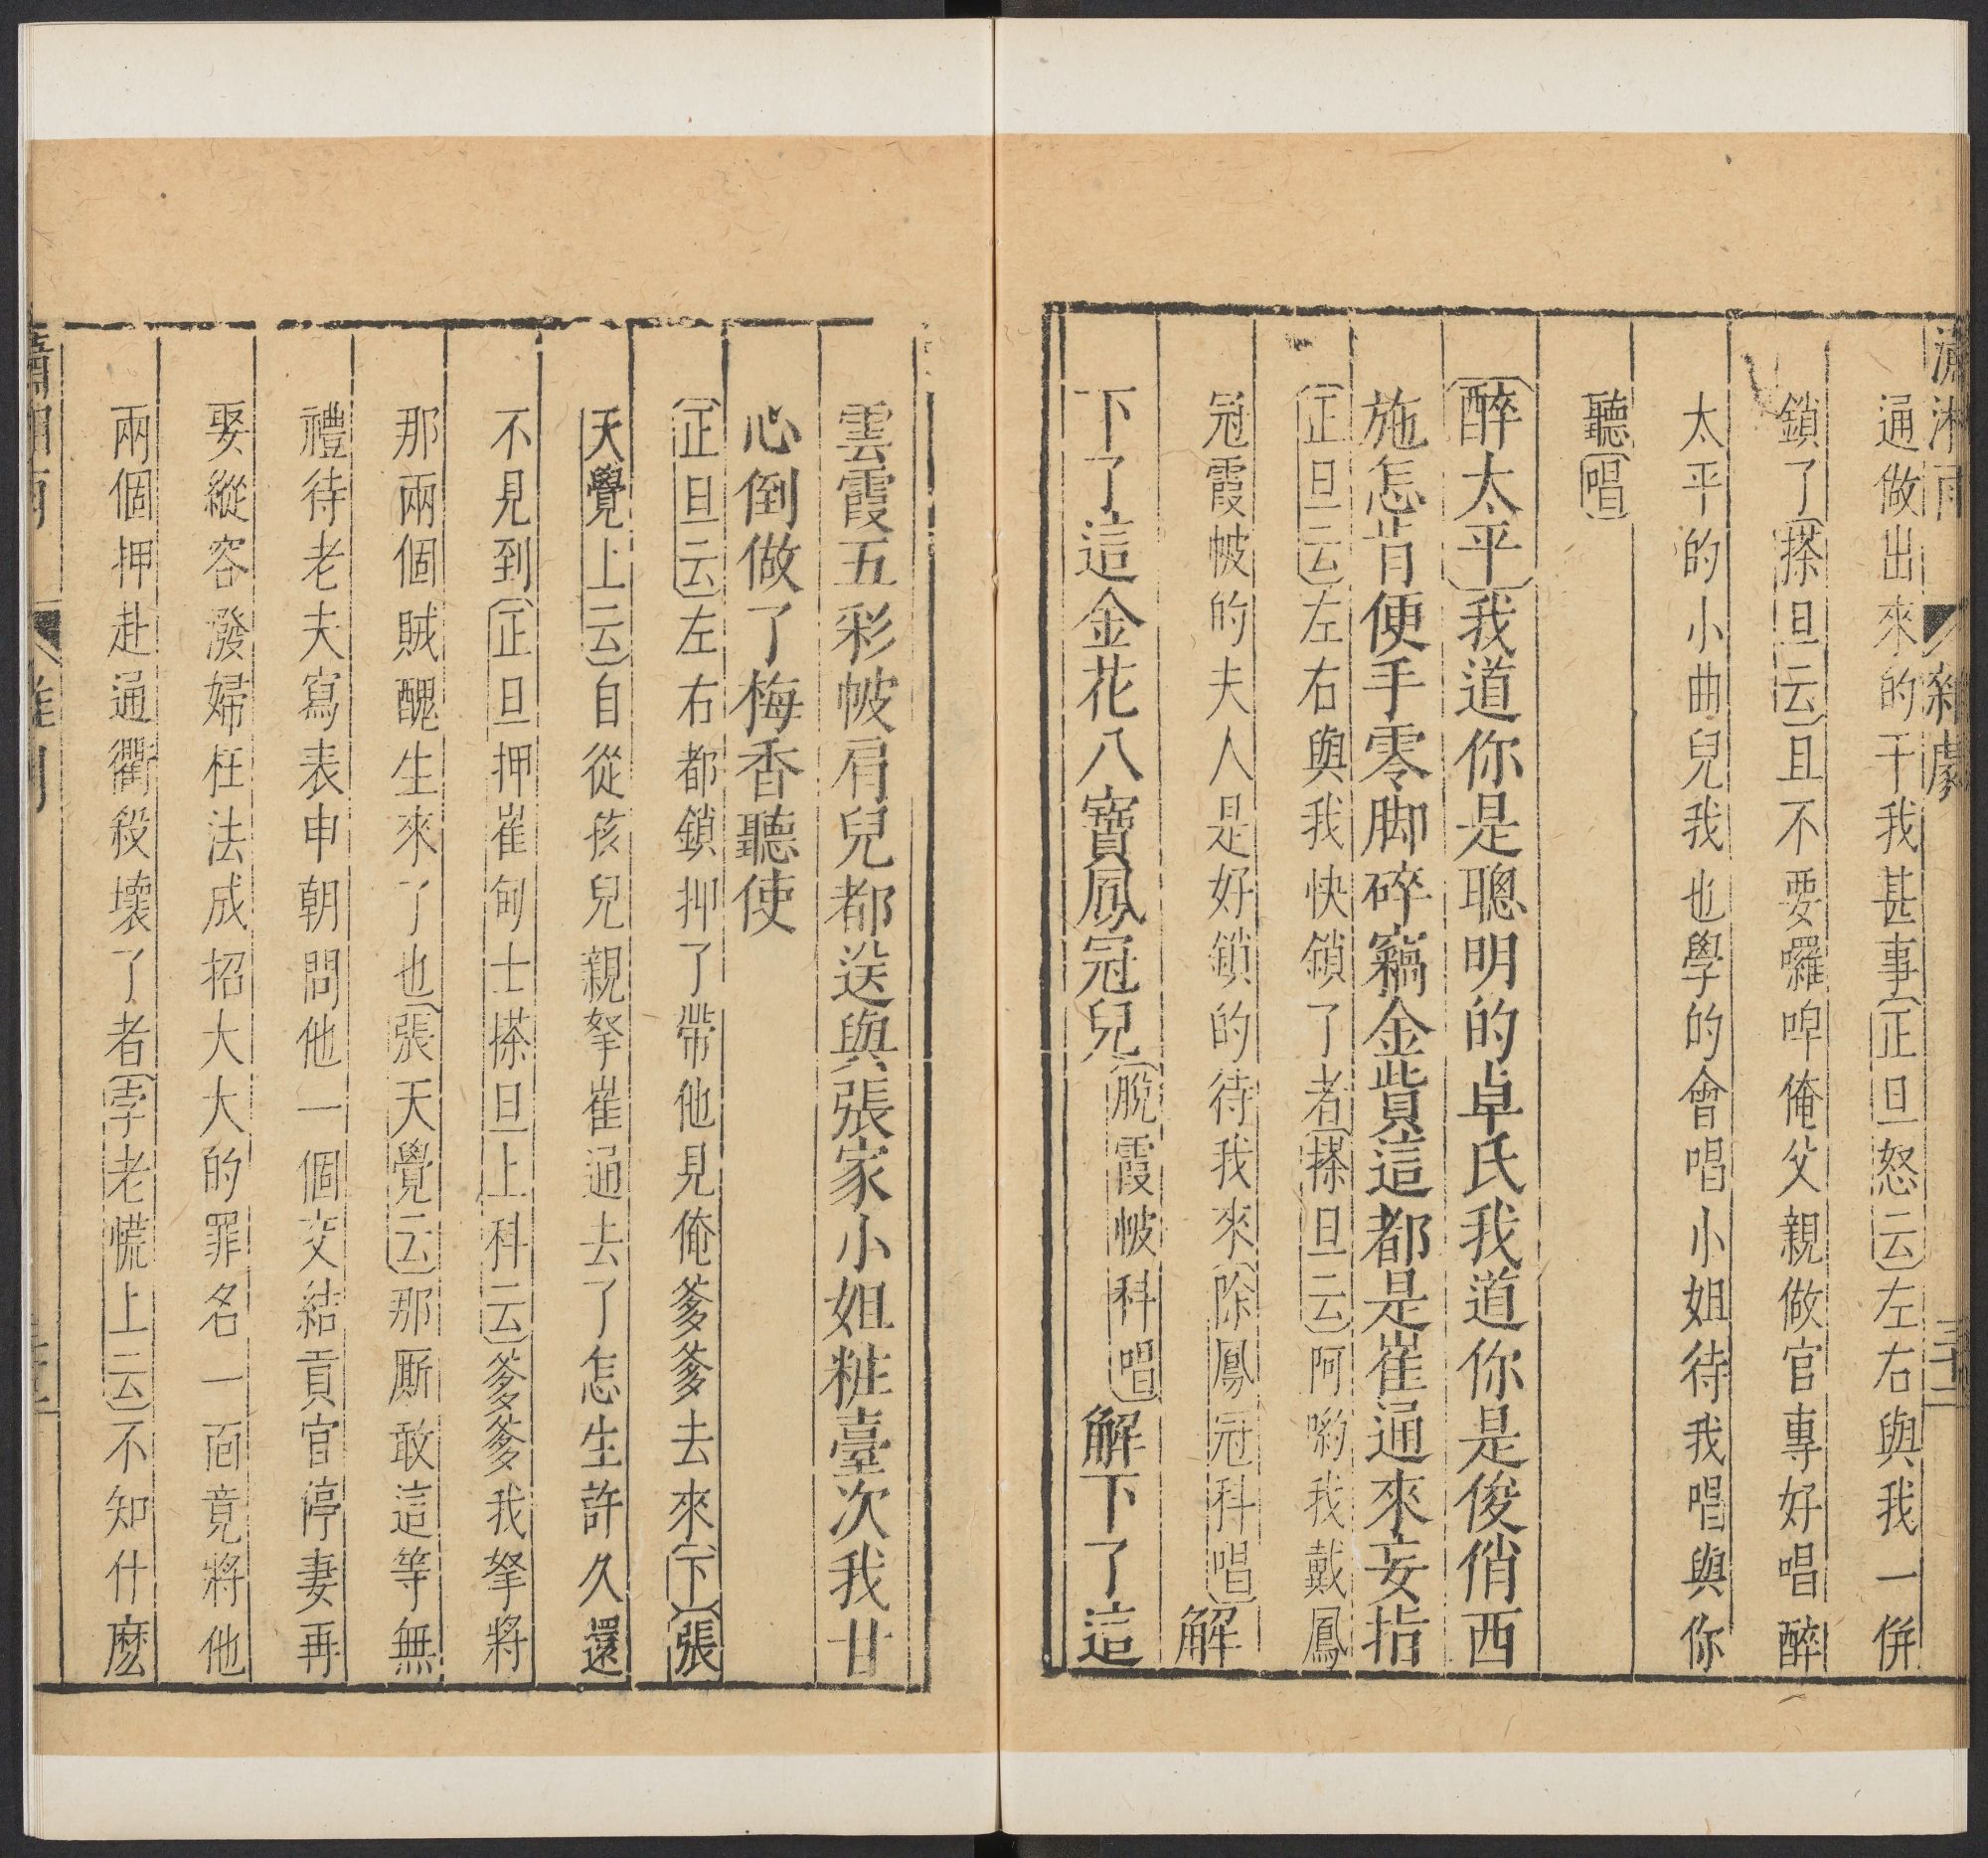 瀟湘雨 雜劇 三十二
通做出來的干我甚事(正旦怒云)左右與我一併
鎖了(搽旦云)且不要囉唣俺父親做官專好唱醉
太平的小曲兒我也學的會唱小姐待我唱與你
聽(唱)
〔醉太平〕我道你是聰明的卓氏我道你是俊俏西
施怎肯便手零脚碎竊金貲這都是崔通來妄指
(正旦云)左右與我快鎖了者(搽旦云)阿喲我戴鳳
冠霞帔的夫人是好鎖的待我來(除鳳冠科唱)解
下了這金花八寶鳳冠兒(脫霞帔科唱)解下了這
雲霞五彩帔肩兒都送與張家小姐粧臺次我甘
心倒做了梅香聽使
(正旦云)左右都鎖押了帶他見俺爹爹去來(下)(張
天覺上云)自從孩兒親拏崔通去了怎生許久還
不見到(正旦押崔甸士搽旦上科云)爹爹我拏將
那兩個賊醜生來了也(張天覺云)那厮敢這等無
禮待老夫寫表申朝問他一個交結貢官停妻再
娶縱容潑婦枉法成招大大的罪名一面竟將他
兩個押赴通衢殺壞了者(孛老慌上云)不知什麽
瀟湘雨 雜劇